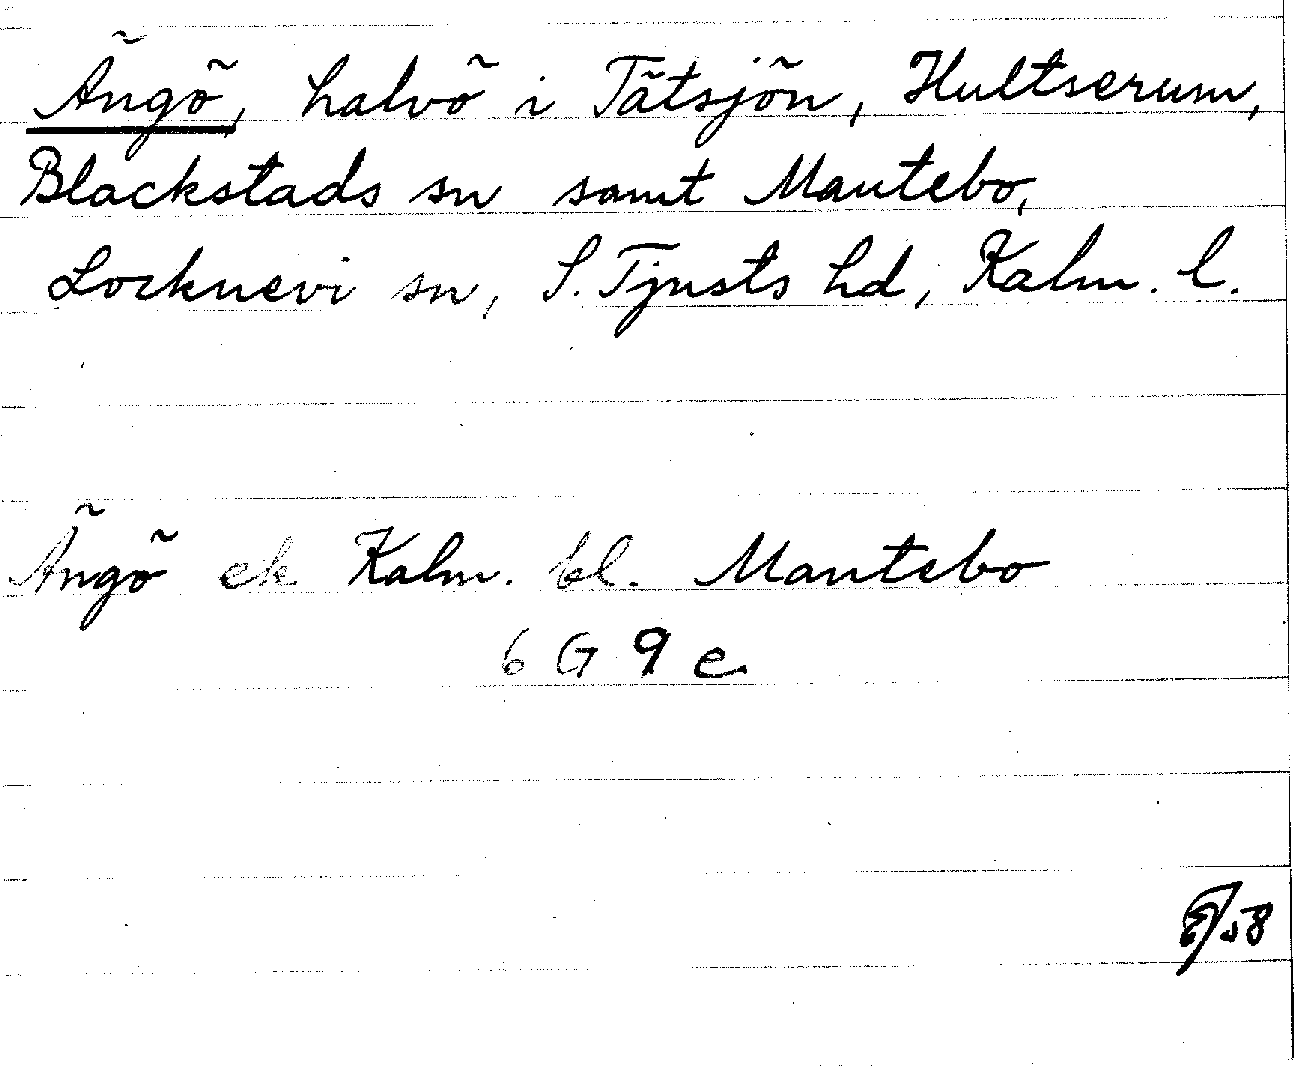 Ängö, halvö i Tätsjön, Hultserum,
Blackstads sn samt Mantebo,
Locknevi sn, S. Tjusts hd, Kalm. l.
Ängö ek Kalm. bl. Mantebo
6 G 9 e
58